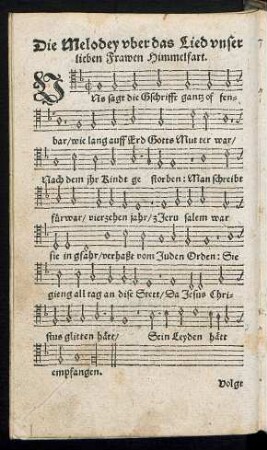 Die Melodey vber das Lied vnser
lieben Frawen Himmelfart.
VNs sagt die Gschrifft gantz of fen-
bar/wie lang auff Erd Gotts Mut ter war/
Nach dem jhr Kindt ge storben: Man schreibt
fürwar/ vierzehen jahr/ zJeru salem war
sie in gfahr/verhaßt vom Juden Orden: Sie
gieng all tag an dise Stett/ Da Jesus Chri-
stus glitten hätt/ Sein Leyden hätt
empfangen.
Volgt